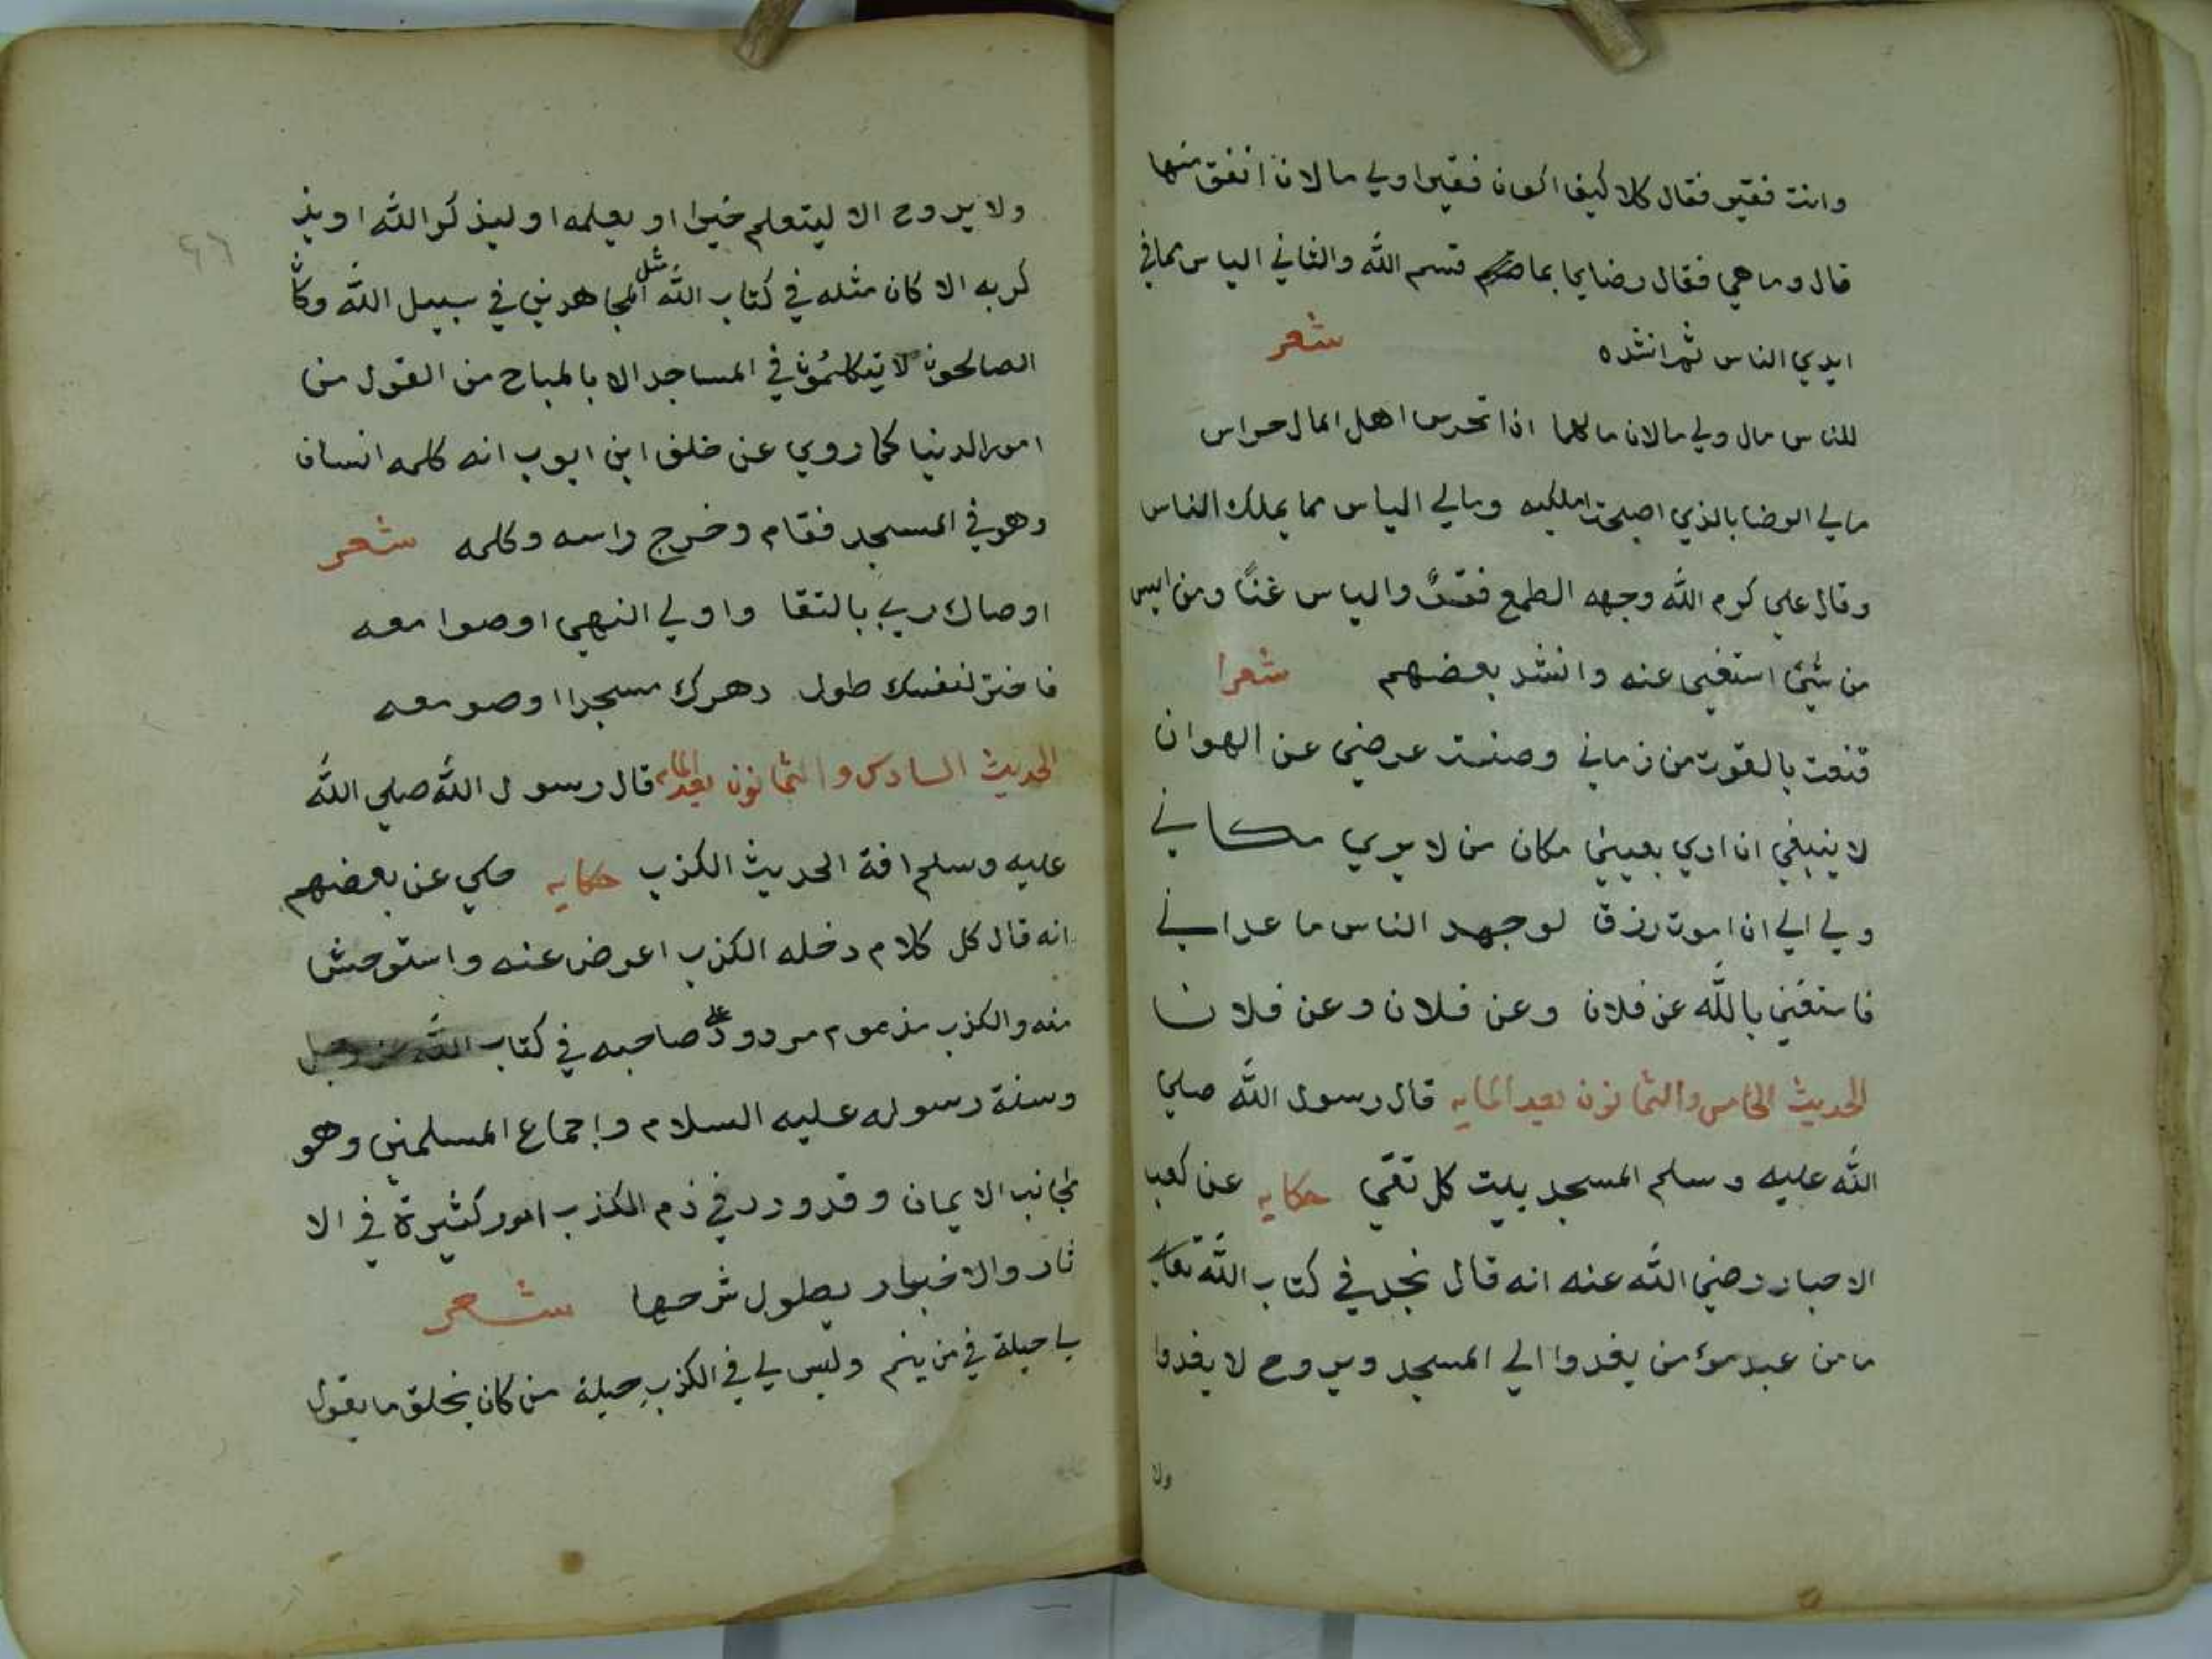 وانت فقير فقال كلا كيف اكون فقيرا ولي مالان انفق منها
قال وما هي فقال رضايا بما قسم الله والثاني الياس بما في
ايدي الناس ثم انشده شعر
للناس مال ولي مالان مالهما اذا تحرس اهل المال حراس
مالي الرضا بالذي اصبحت املكه ومالي الياس مما يملك الناس
وقال علي كرم الله وجهه الطمع فقرٌ والياس غنًا ومن ايس
من شئ استغنى عنه وانشد بعضهم شعرا
قنعت بالقوت من زماني وصنت عرضي عن الهوان
لا ينبغي ان اري بعيني مكان من لا يري مكاني
ولي الي ان اموت رزق لو جهد الناس ما عداني
فاستغني بالله عن فلان وعن فلان وعن فلان
الحديث الخامس والثمانون بعد المايه قال رسول الله صلي
الله عليه وسلم المسجد بيت كل تقي حكايه عن كعب
الاحبار رضي الله عنه انه قال نجد في كتاب الله تعالي
ما من عبد مؤمن يغدوا الي المسجد ويروح لا يغدوا
ولا
٩٦
ولا يروح الا ليتعلم خيرا او يعلمه او ليذكر الله او يذ
كر به الا كان مثله في كتاب الله مثل المجاهدين في سبيل الله وكان
الصالحون لا يتكلمُون في المساجد الا بالمباح من القول من
امور الدنيا كما روي عن خلف ابن ايوب انه كلمه انسان
وهو في المسجد فقام وخرج راسه وكلمه شعر
اوصاك ربي بالتقا واولي النهي اوصوا معه
فاختر لنفسك طول دهرك مسجدا او صومعه
الحديث السادس والثمانون بعد المايه قال رسول الله صلي الله
عليه وسلم افة الحديث الكذب حكايه حكي عن بعضهم
انه قال كل كلام دخله الكذب اعرض عنه واستوحش
منه والكذب مذموم مردود علي صاحبه في كتاب الله عز وجل
وسنة رسوله عليه السلام واجماع المسلمين وهو
مجانب الايمان وقد ورد في ذم الكذب امور كثيرة في الا
ثار والاخبار يطول شرحها شعر
يا حيلة في من ينم وليس لي في الكذب حيلة من كان يخلق ما يقول